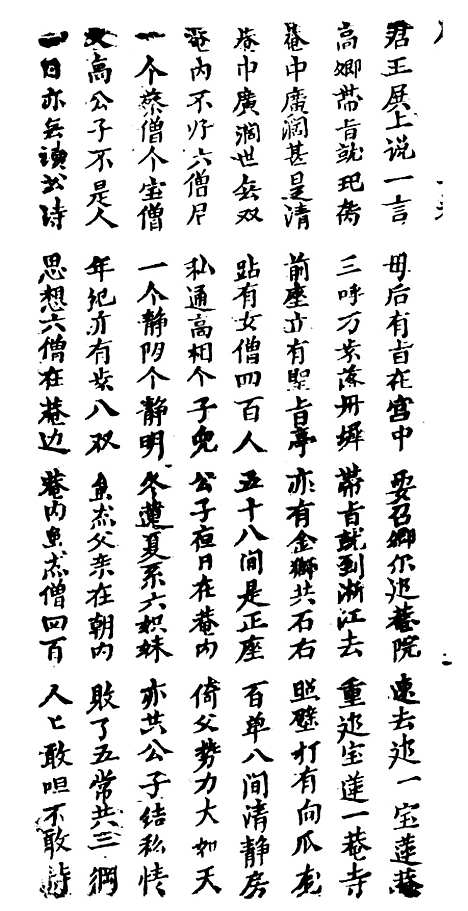 君王展上说一言 毋后有旨在宫中 要召卿你造菴院 速去造一宝莲菴
高卿带旨就起 三呼万岁落丹墀 带旨就到淅江去 重造宝莲一菴寺
菴中廣阔甚是清 前座亦有聖旨亭 亦有金獅共石右 照壁打有向瓜
菴巾廣阔世無双 跕有女僧四百人 五十八间是正座 百单八间清静房
菴内不好六僧尼 私通高相个子兒 公子夜日在菴内 倚父势力大如天
一个蔡僧个宝僧 一个静阴个静明 冬遮夏系六姐妹 亦共公子结私情
文高公子不是人 年纪亦有岁八双 虽然父亲在朝内 敗了五常共三綱
一日亦無讀书诗 思想六僧在菴边 菴内虽然僧四百 人匕敢呾不敢